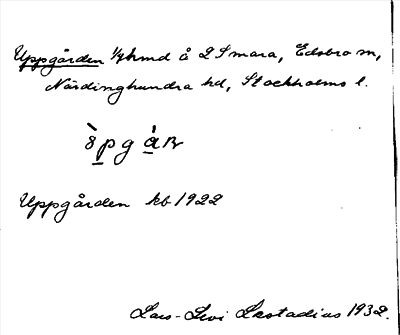 Uppgården 1/4 hmd å 2 Smara, Edsbro sn,
Närdinghundra hd, Stockholms l.
Uppgården kb 1922
Lars-Levi Læstadius 1932.